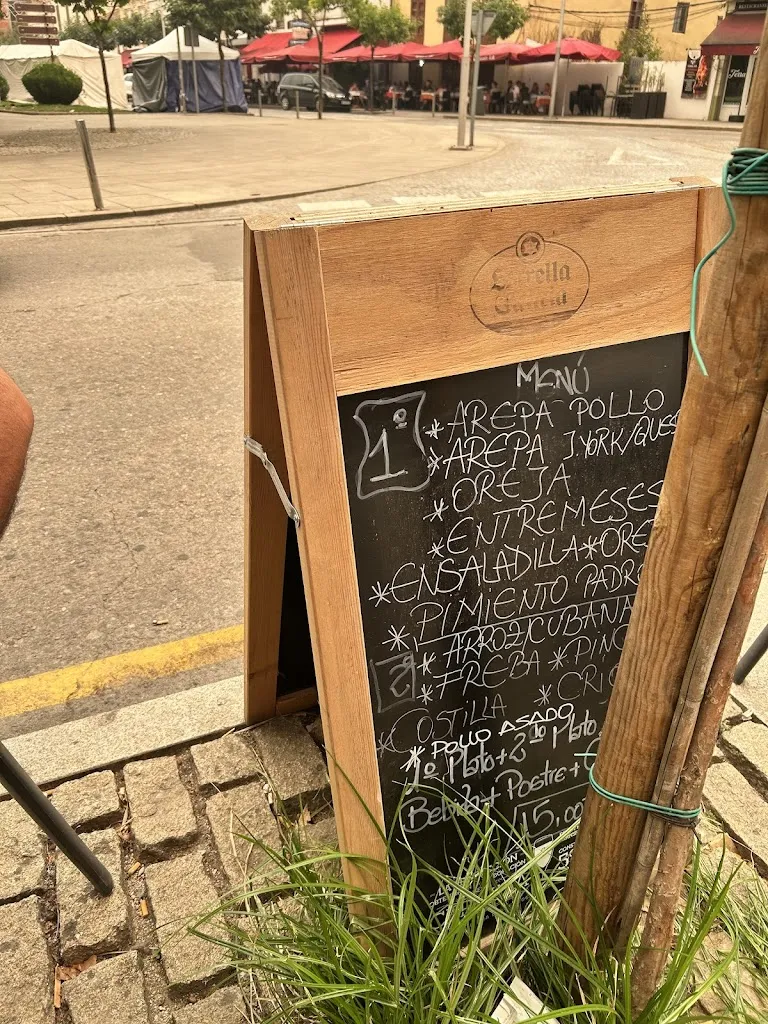 Estrella
Galicia
MENÚ
1º
* AREPA POLLO
* AREPA J.YORK/QUES
* OREJA
* ENTREMESES
* ENSALADILLA * ORE
* PIMIENTO PADR
2º
* ARROZ CUBANA
* FREBA * PINC
* COSTILLA * CRIO
* POLLO ASADO
1º Plato + 2do Plato
Bebida + Postre +
15,00